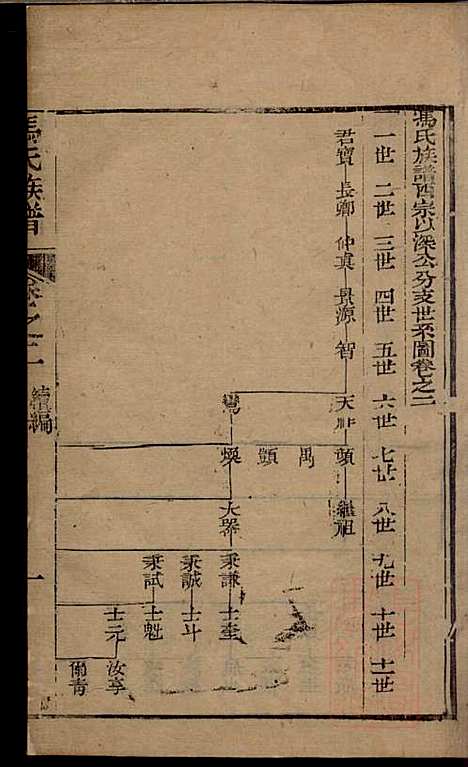 馮氏族譜西宗以深公分支世系圖卷之二
一世 二世 三世 四世 五世 六世 七世 八世 九世 十世 十一世
君寶 長卿 仲真 景源 智 天 頭 繼祖
禺
顗
鸞 煥 大器 秉謙 士奎
秉誠 士斗
秉試 士魁
士元 汝亭
爾青
馮氏族譜 卷之二 續編 一